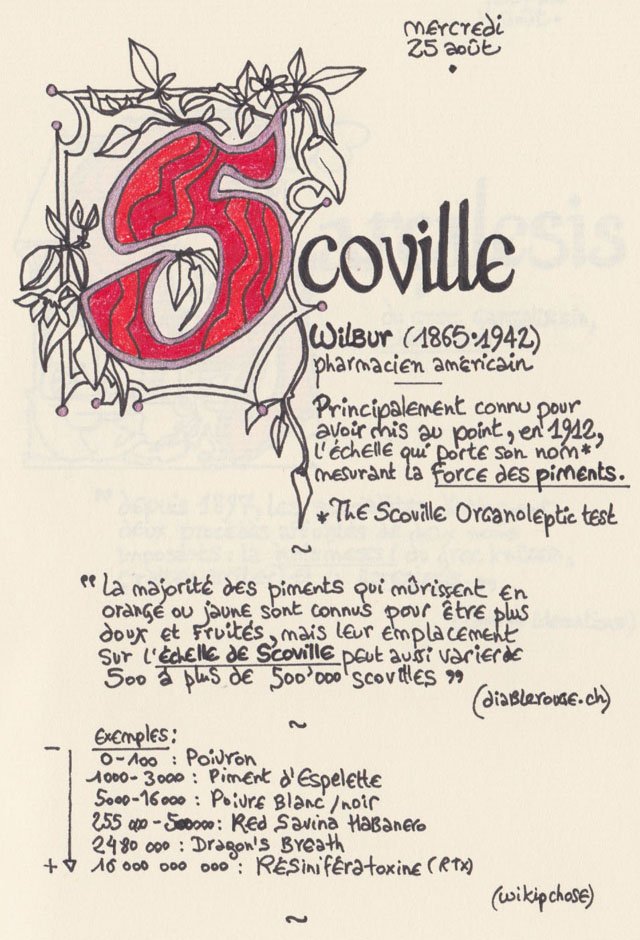 mercredi
25 août
Scoville
Wilbur (1865•1942)
pharmacien américain
Principalement connu pour
avoir mis au point, en 1912,
l'échelle qui porte son nom*
mesurant la force des piments.
*The Scoville Organoleptic test
~
" La majorité des piments qui mûrissent en
orange ou jaune sont connus pour être plus
doux et fruités, mais leur emplacement
sur l'échelle de Scoville peut aussi varier de
500 à plus de 500'000 scovilles "
(diablerouge.ch)
~
Exemples:
− 0-100 : Poivron
1000-3000 : Piment d'Espelette
5000-16000 : Poivre Blanc/noir
255 000-500000: Red Savina Habanero
2480 000 : Dragon's Breath
+ 16 000 000 000 : RÉsinifÉratoxine (RTX)
(wikipchose)
~